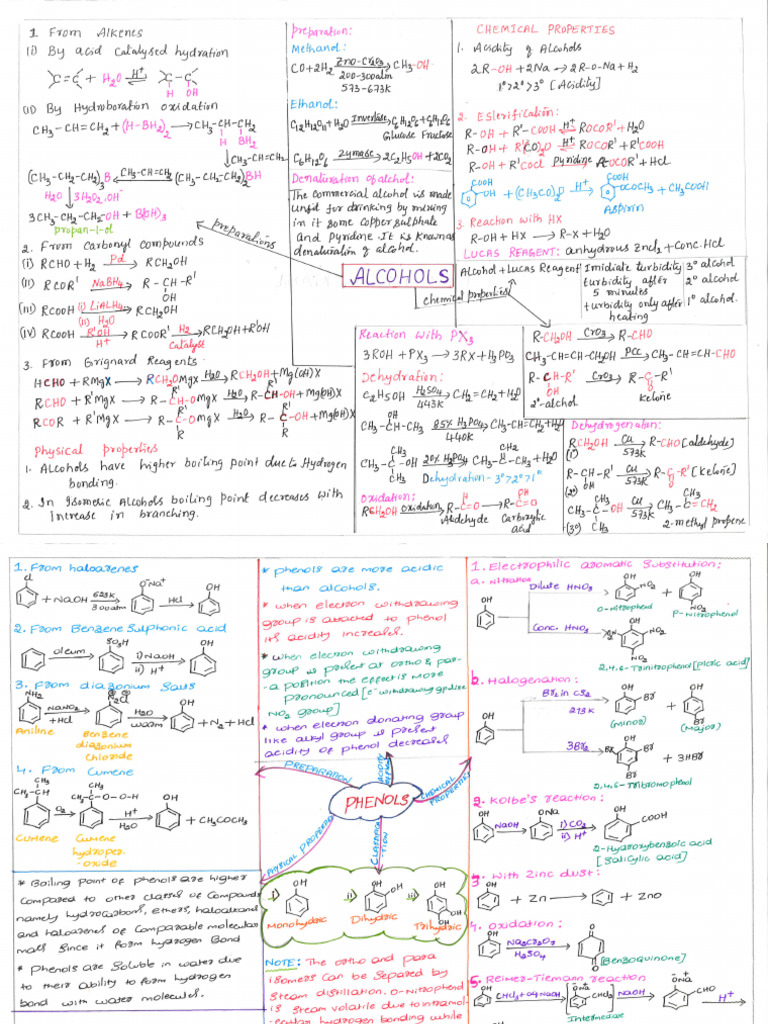 1. From Alkenes
(i) By acid catalysed hydration
C=C + H2O ⇌ C-C
H+
H OH
(ii) By Hydroboration oxidation
CH3-CH=CH2 + (H-BH2)2 → CH3-CH-CH2
H BH2
↓CH3-CH=CH2
(CH3-CH2-CH2)3B ← CH3-CH=CH2 (CH3-CH2-CH2)2BH
H2O ↓ 3H2O2, OH-
3CH3-CH2-CH2-OH + B(OH)3
propan-1-ol
2. From Carbonyl compounds
(i) RCHO + H2 Pd → RCH2OH
(ii) RCOR' NaBH4 → R-CH-R'
OH
(iii) RCOOH (i) LiAlH4 → RCH2OH
(ii) H2O
(iv) RCOOH R'OH → RCOOR' H2 → RCH2OH + R'OH
H+ Catalyst
3. From Grignard Reagents
HCHO + RMgX → RCH2OMgX H2O → RCH2OH + Mg(OH)X
RCHO + R'MgX → R-CH-OMgX H2O → R-CH-OH + Mg(OH)X
RCOR + R'MgX → R-C-OMgX H2O → R-C-OH + Mg(OH)X
Physical properties
1. Alcohols have higher boiling point due to Hydrogen
bonding.
2. In Isomeric Alcohols boiling point decreases with
Increase in branching.
preparations
Preparation:
Methanol:
CO + 2H2 ZnO-Cr2O3 → CH3-OH
200-300atm
573-673K
Ethanol:
C12H22O11 + H2O Invertase → C6H12O6 + C6H12O6
Glucose Fructose
C6H12O6 Zymase → 2C2H5OH + 2CO2
Denaturation of alcohol:
The commercial alcohol is made
unfit for drinking by mixing
in it some copper sulphate
and Pyridine It is known as
denaturation of alcohol.
ALCOHOLS
chemical properties
CHEMICAL PROPERTIES
1. Acidity of Alcohols
2R-OH + 2Na → 2R-O-Na + H2
1°>2°>3° [Acidity]
2. Esterification:
R-OH + R'-COOH H+ ⇌ ROCOR' + H2O
R-OH + (R'CO)2O H+ ⇌ ROCOR' + R'COOH
R-OH + R'COCl Pyridine → ROCOR' + HCl
COOH OH + (CH3CO)2O H+ → COOH OCOCH3 + CH3COOH
Aspirin
3. Reaction with HX
R-OH + HX → R-X + H2O
LUCAS REAGENT: anhydrous ZnCl2 + Conc. HCl
Alcohol + Lucas Reagent Imidiate turbidity 3° alcohol
turbidity after 2° alcohol
5 minutes
turbidity only after 1° alcohol.
heating
R-CH2OH CrO3 → R-CHO
CH3-CH=CH-CH2OH PCC → CH3-CH=CH-CHO
R-CH-R' CrO3 → R-C-R'
OH O
2°-alchol Ketone
Reaction with PX3
3ROH + PX3 → 3RX + H3PO3
Dehydration:
C2H5OH H2SO4 → CH2=CH2 + H2O
443K
OH
CH3-CH-CH3 85% H3PO4 → CH3-CH=CH2 + H2O
440K
CH3 CH2
CH3-C-OH 20% H3PO4 → CH3-C-CH3 + H2O
CH3
Dehydration-3°>2°>1°
Oxidation:
RCH2OH oxidation → R-C=O → R-C=O
H OH
Aldehyde Carboxylic
acid
Dehydrogenation:
RCH2OH Cu → R-CHO [aldehyde]
(1°) 573K
R-CH-R' Cu → R-C-R' [Ketone]
(2°) OH 573K O
CH3 CH3
CH3-C-OH Cu → CH3-C=CH2
(3°) CH3 573K 2-methyl propene
1. From haloarenes
Cl + NaOH 623K → O-Na+ HCl → OH
300atm
2. From Benzene Sulphonic acid
oleum → SO3H i) NaOH → OH
ii) H+
3. From diazonium Salts
NH2 NaNO2 → N2Cl H2O → OH + N2 + HCl
+HCl warm
Aniline Benzene
diazonium
Chloride
4. From Cumene
CH3 CH3
CH3-CH O2 → CH3-C-O-O-H H+ → OH + CH3COCH3
H2O
Cumene Cumene
hydroper-
-oxide
* Boiling Point of phenols are higher
compared to other classes of compounds
namely hydrocarbons, ethers, haloalkanes
and haloarenes of comparable molecular
mass since it form hydrogen Bond
* Phenols are soluble in water due
to their ability to form hydrogen
bond with water molecules.
* phenols are more acidic
than alcohols.
* when electron withdrawing
group is attacted to phenol
its acidity increases.
* when electron withdrawing
group is present at ortho & par-
-a position the effect is more
pronounced [e- withdrawing gp like
NO2 group]
* when electron donating group
like alkyl group is present
acidity of phenol decreases
PREPARATION
PHENOLS
CHEMICAL PROPERTIES
PHYSICAL PROPERTIES
CLASSIFICA
-TION
i) OH ii) OH OH iii) OH OH OH
Monohydric Dihydric Trihydric
NOTE: The ortho and para
isomers can be separed by
steam distillation. o-nitrophenol
is steam volatile due to intramol-
ecular hydrogen bonding while
1. Electrophilic aromatic Substitution:
a. Nitration
OH Dilute HNO3 → OH NO2 + OH NO2
o-Nitrophenol P-Nitrophenol
Conc. HNO3 → OH O2N NO2 NO2
2,4,6-Trinitrophenol [picric acid]
b. Halogenation:
OH Br2 in CS2 → OH Br + OH Br
273K
(minor) (Major)
3Br2 → OH Br Br Br + 3HBr
2,4,6-Tribromophenol
2. Kolbe's reaction:
OH NaOH → ONa i) CO2 → OH COOH
ii) H+
2-Hydroxybenzoic acid
[Salicylic acid]
3. With Zinc dust:
OH + Zn → + ZnO
4. Oxidation:
OH Na2Cr2O7 → O O
H2SO4 [Benzoquinone]
5. Reimer-Tiemann reaction
OH CHCl3 + aq NaOH → ONa CHCl2 NaOH → O-Na+ CHO H+ →
Intermediate